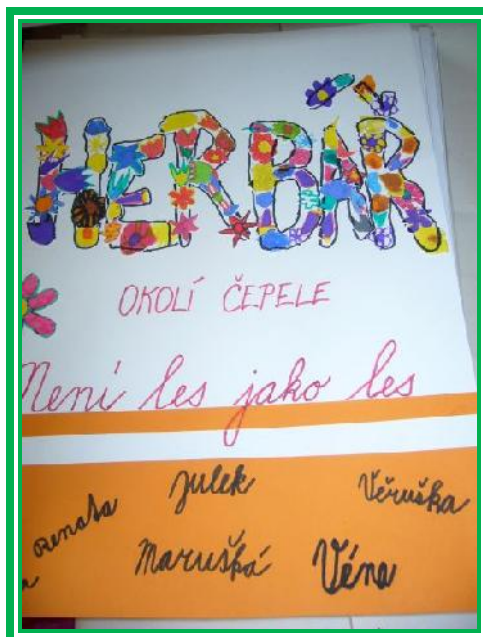 HERBÁŘ
OKOLÍ ČEPELE
Není les jako les
Julek Věruška
Renata
Maruška Véna